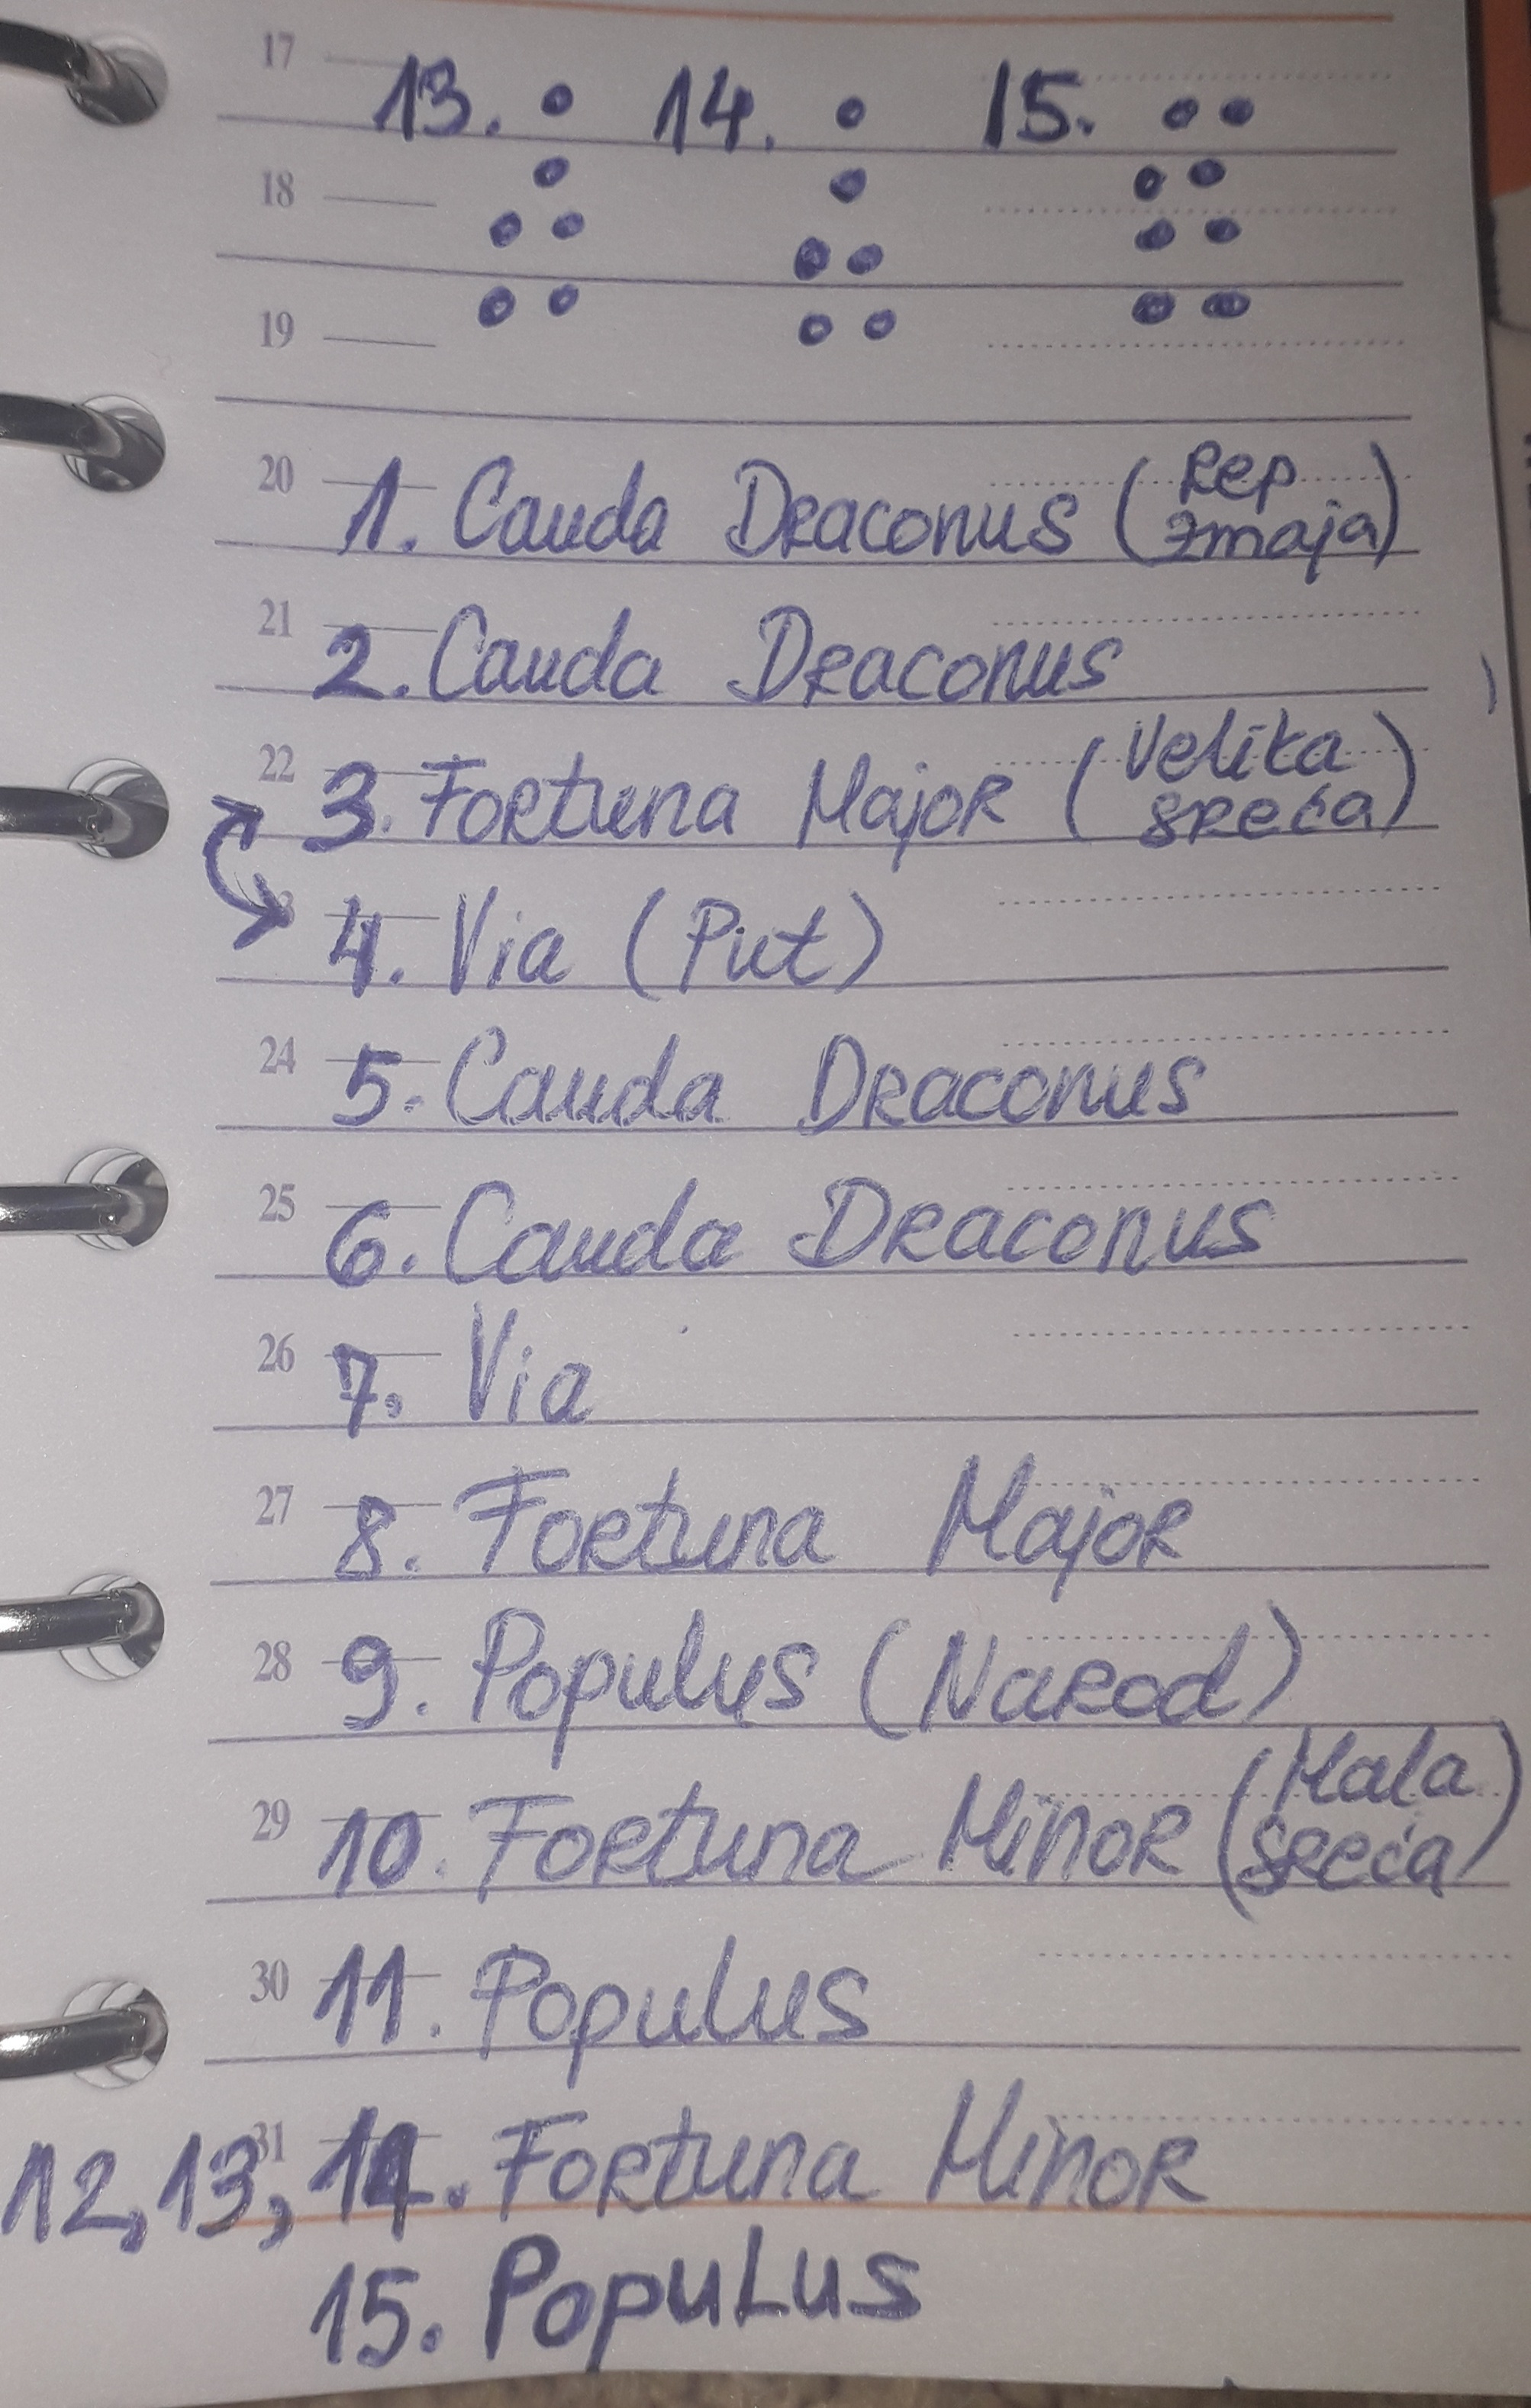 17 13. 14. 15.
18
19
20 1. Cauda Draconus (Rep zmaja)
21 2. Cauda Draconus
22 3. Fortuna Major (Velika sreća)
4. Via (Put)
24 5. Cauda Draconus
25 6. Cauda Draconus
26 7. Via
27 8. Fortuna Major
28 9. Populus (Narod)
29 10. Fortuna Minor (Mala sreća)
30 11. Populus
31 12, 13, 14. Fortuna Minor
15. Populus